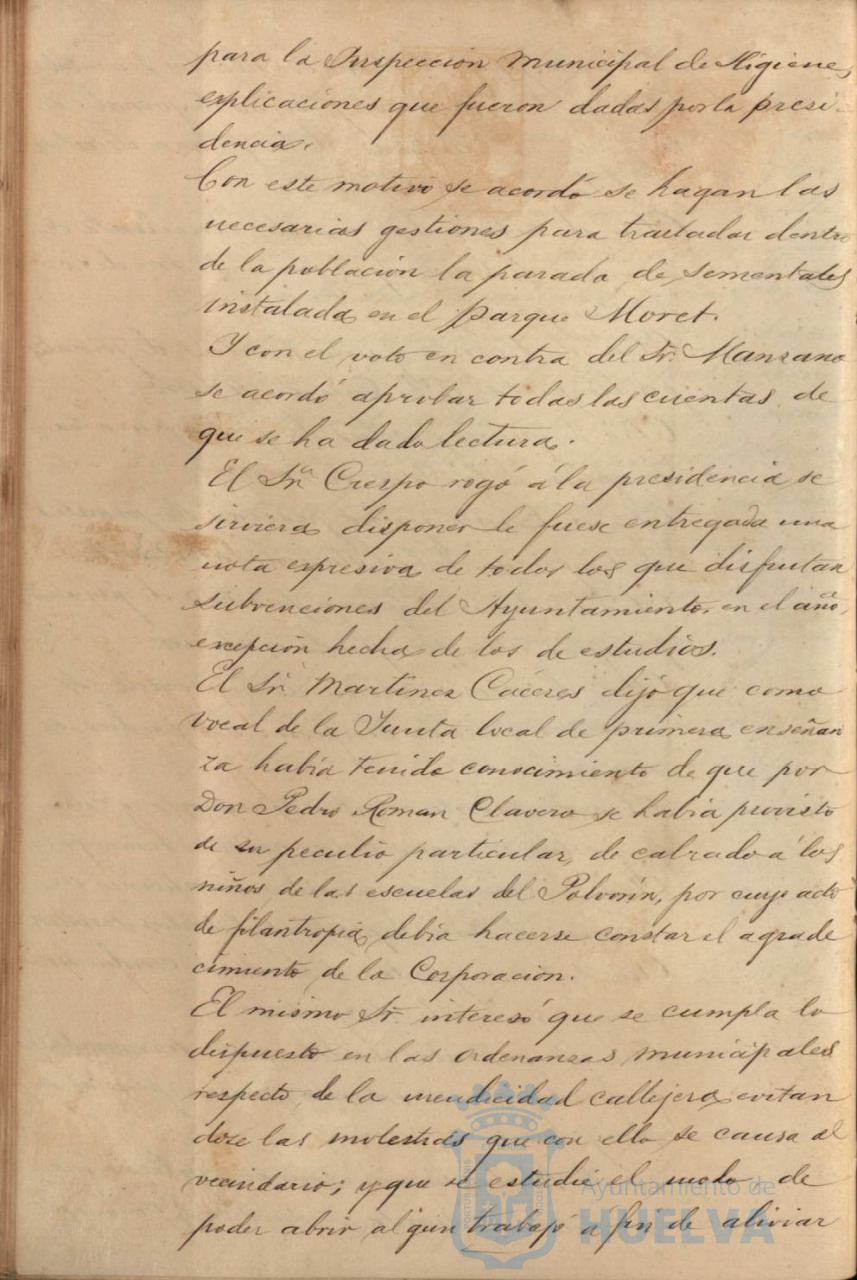 para la Inspección municipal de Higiene,
explicaciones que fueron dadas por la presi-
dencia.
Con este motivo se acordó se hagan las
necesarias gestiones para trasladar dentro
de la población la parada de sementales
instalada en el parque Moret.
Y con el voto en contra del Sr. Manzano
se acordó aprobar todas las cuentas de
que se ha dado lectura.
El Sr. Crespo rogó á la presidencia se
sirviera disponer le fuese entregada una
nota expresiva de todos los que disfrutan
subvenciones del Ayuntamiento, en el año,
excepción hecha de los de estudios.
El Sr. Martinez Cáceres dijó que como
vocal de la Junta local de primera enseñan
za había tenido conocimiento de que por
Don Pedro Roman Clavero se habia provisto
de su peculio particular, de calzado á los
niños de las escuelas del Polvorín, por cuyo acto
de filantropia, debia hacerse constar el agrade
cimiento de la Corporacion.
El mismo Sr. interesó que se cumpla lo
dispuesto en las ordenanzas municipales
respecto de la mendicidad callejera, evitan
dose las molestias que con ello se causa al
vecindario; y que se estudie el modo de
poder abrir algun trabajo á fin de aliviar
Ayuntamiento de
HUELVA